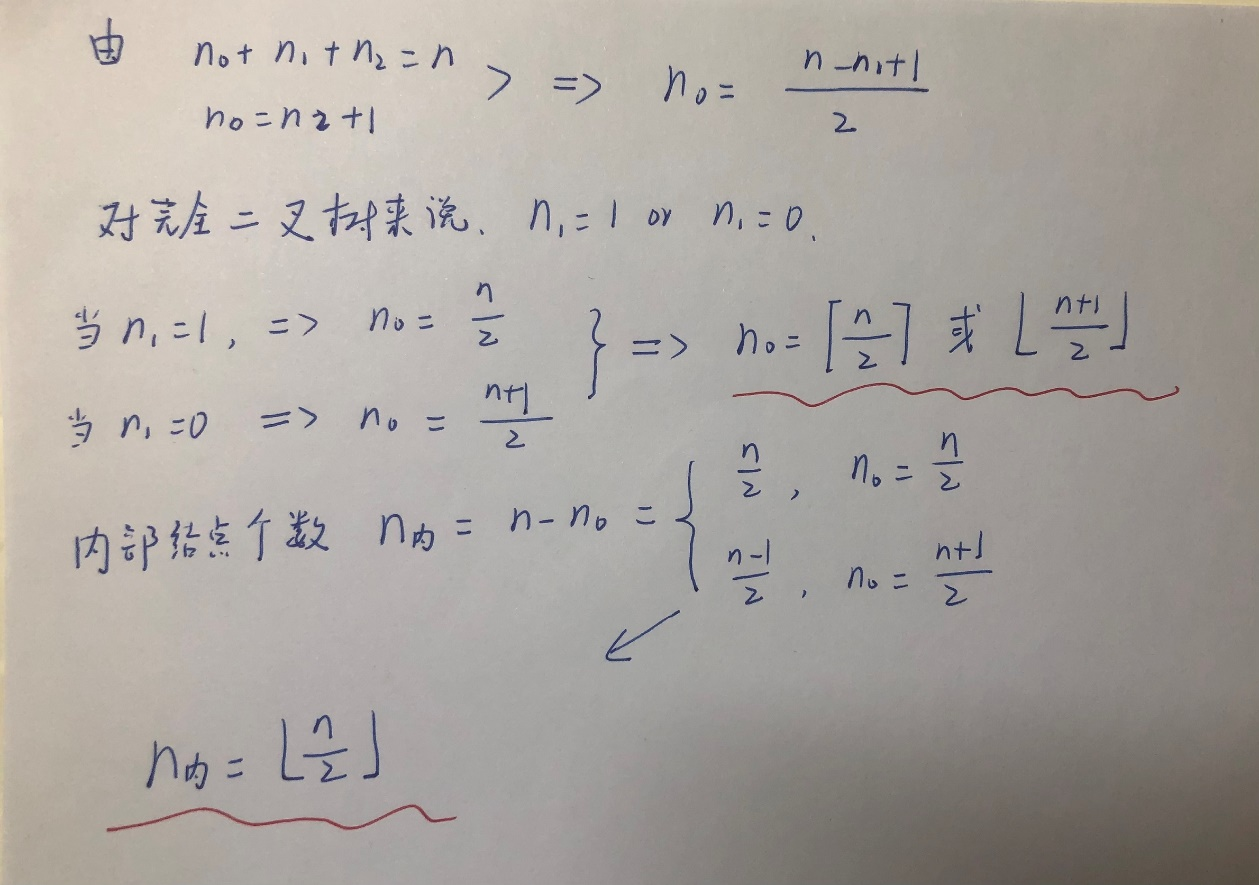 由 n₀ + n₁ + n₂ = n
n₀ = n₂ + 1
> => n₀ = (n - n₁ + 1)/2
对完全二叉树来说、n₁ = 1 or n₁ = 0.
当 n₁ = 1, => n₀ = n/2
当 n₁ = 0 => n₀ = (n+1)/2
} => n₀ = ⌈n/2⌉ 或 ⌊(n+1)/2⌋
内部结点个数 n内 = n - n₀ = {
n/2, n₀ = n/2
(n-1)/2, n₀ = (n+1)/2
n内 = ⌊n/2⌋